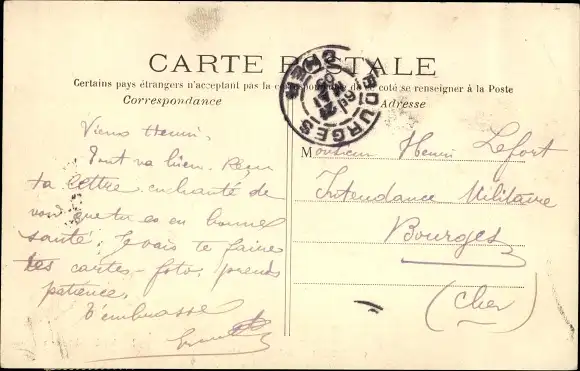 CARTE POSTALE
Certains pays étrangers n'acceptant pas la correspondance de ce coté se renseigner à la Poste
Correspondance
Adresse
BOURGES
CHER
Vieux Henri,
Tout va bien. Reçu
ta lettre, enchanté de
voir que tu es en bonne
santé. Je vais te faire
tes cartes-foto, prends
patience,
T'embrasse
Monsieur Henri Lefort
Intendance Militaire
Bourges
(Cher)